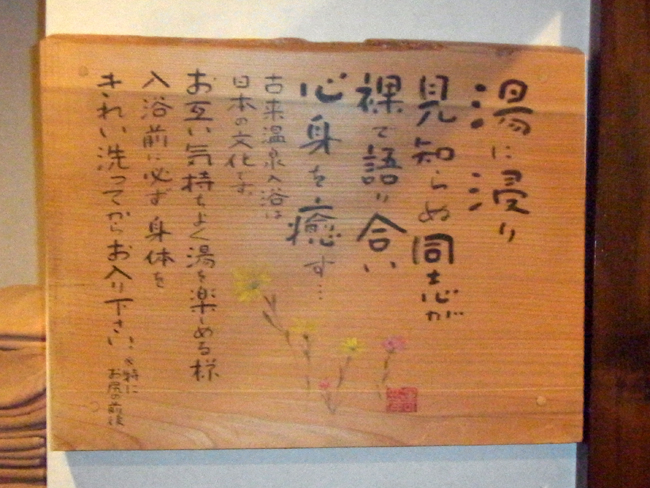 湯に浸り
見知らぬ同志が
裸で語り合い
心身を癒す…
古来温泉入浴は
日本の文化です。
お互い気持ちよく湯を楽しめる様
入浴前に必ず身体を
きれい洗ってからお入り下さい。
※特に
お尻の前後